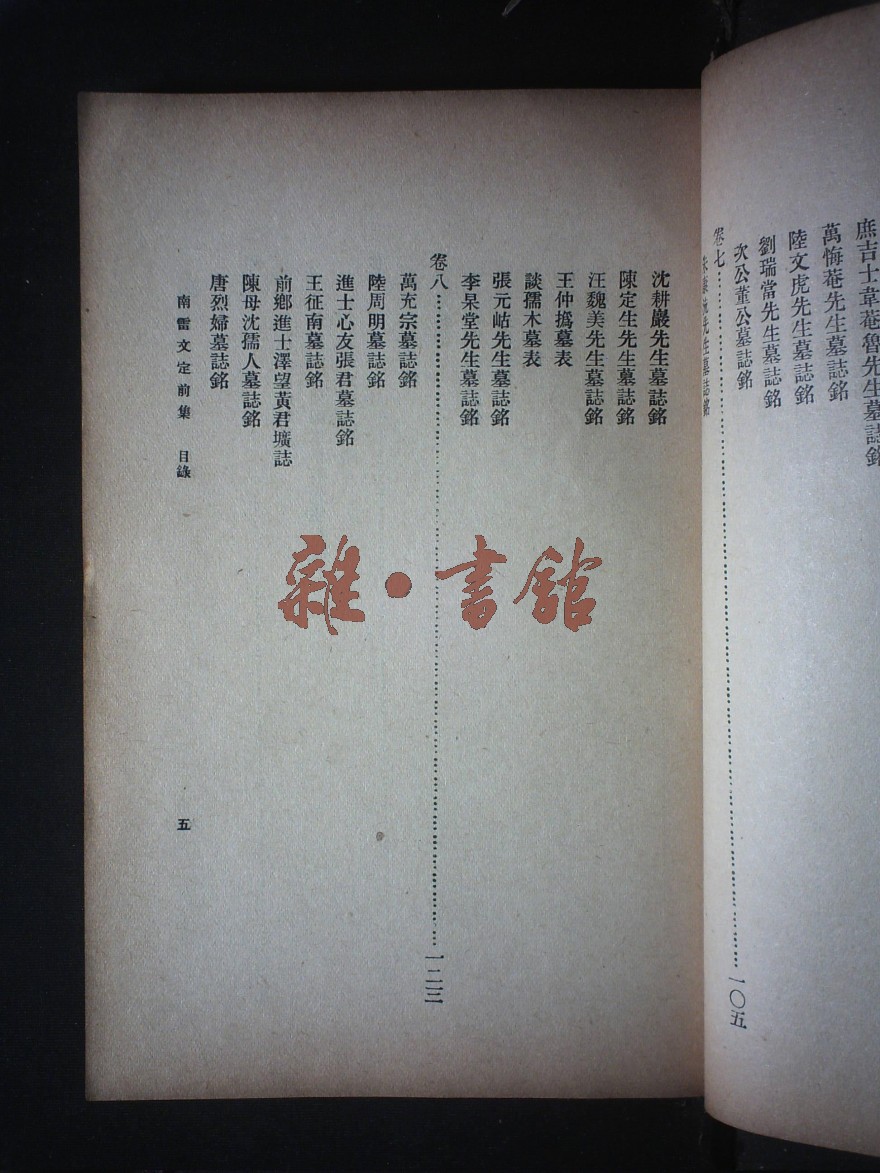 庶吉士韋菴魯先生墓誌銘
萬悔菴先生墓誌銘
陸文虎先生墓誌銘
劉瑞當先生墓誌銘
次公董公墓誌銘
卷七……一〇五
先生墓誌銘
沈耕巖先生墓誌銘
陳定生先生墓誌銘
汪魏美先生墓誌銘
王仲撝墓表
談孺木墓表
張元岵先生墓誌銘
李杲堂先生墓誌銘
卷八……一二三
萬充宗墓誌銘
陸周明墓誌銘
進士心友張君墓誌銘
王征南墓誌銘
前鄉進士澤望黃君壙誌
陳母沈孺人墓誌銘
唐烈婦墓誌銘
南雷文定前集 目錄
五
雜·書館